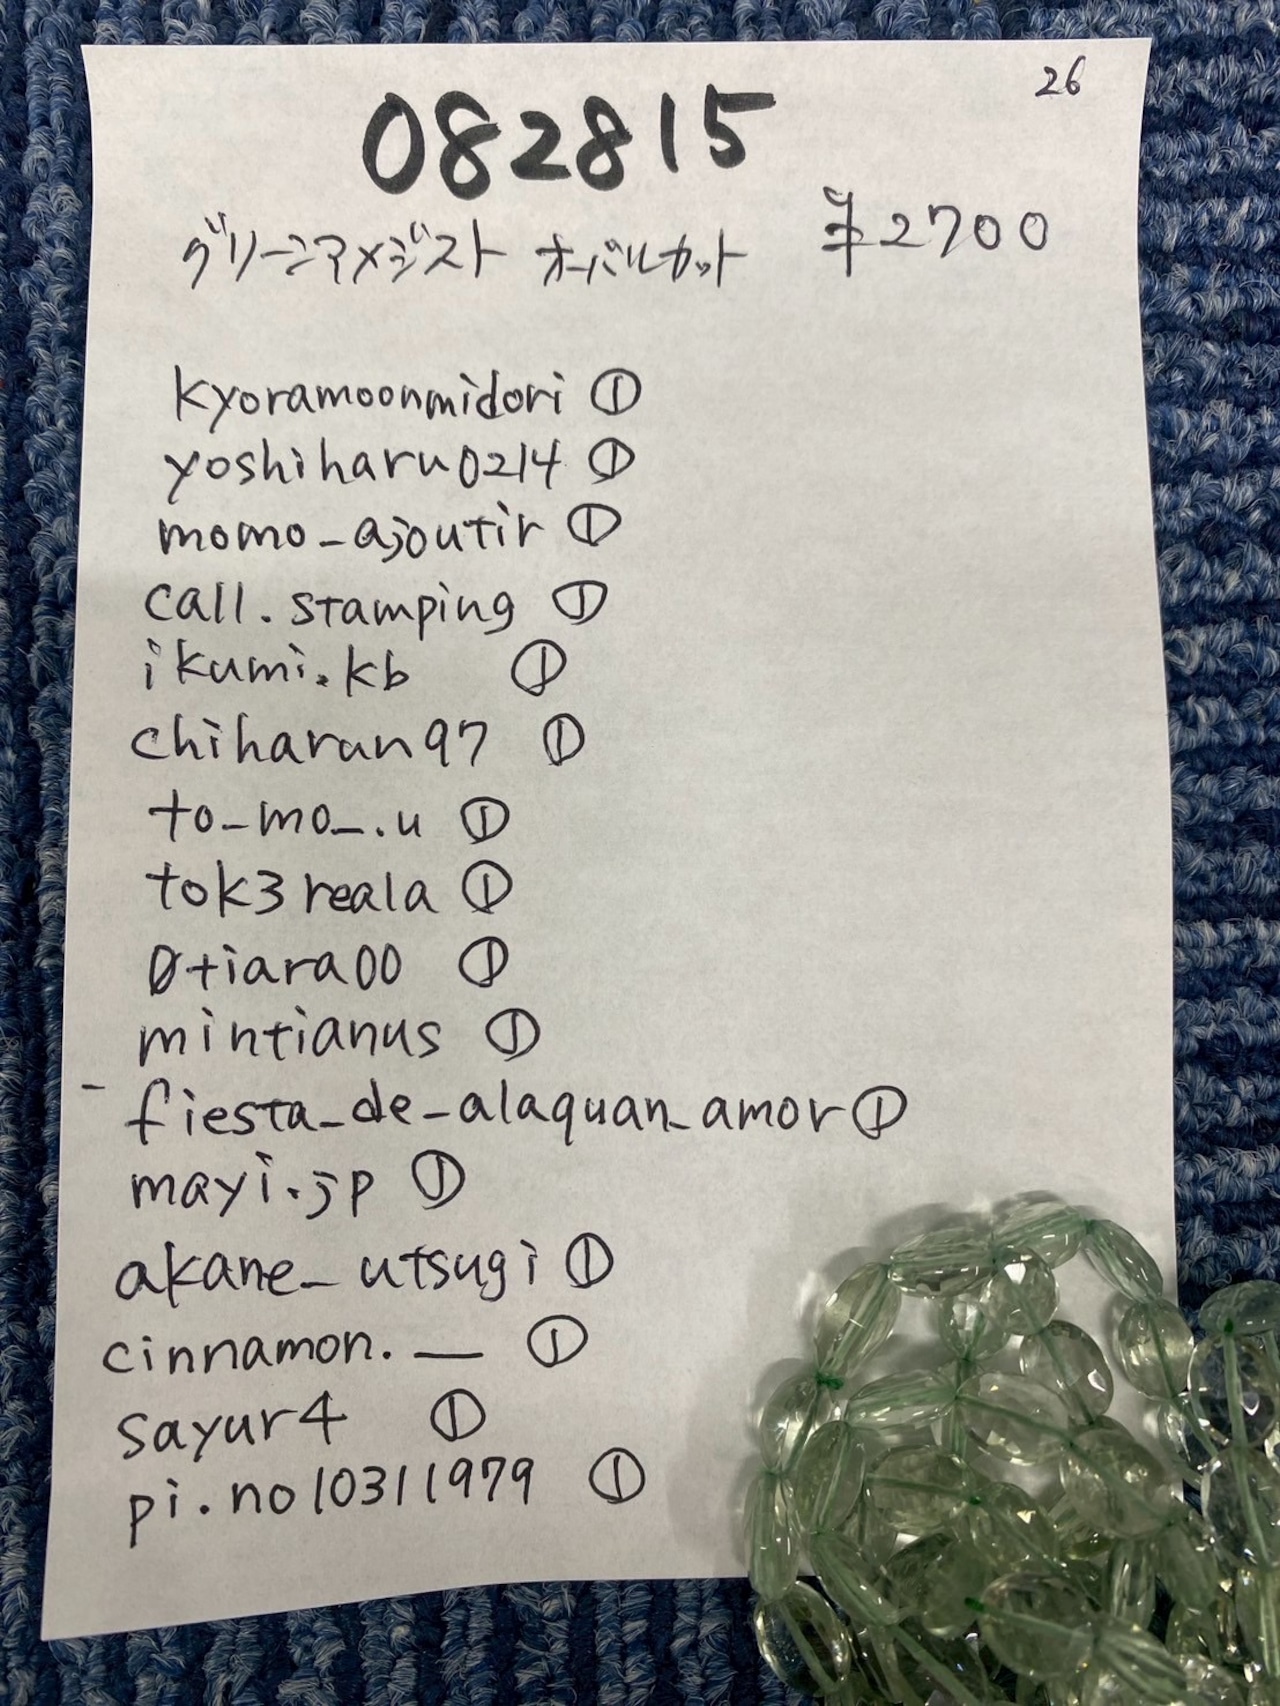 26
082815
グリーンアメジスト オーバルカット ¥2700
kyoramoonmidori ①
yoshiharu0214 ①
momo_ajoutir ①
call.stamping ①
ikumi.kb ①
chiharun97 ①
to_mo_.u ①
tok3reala ①
0tiara00 ①
mintianus ①
fiesta_de_alaquan_amor ①
mayi.jp ①
akane_utsugi ①
cinnamon.__ ①
sayur4 ①
pi.no10311979 ①